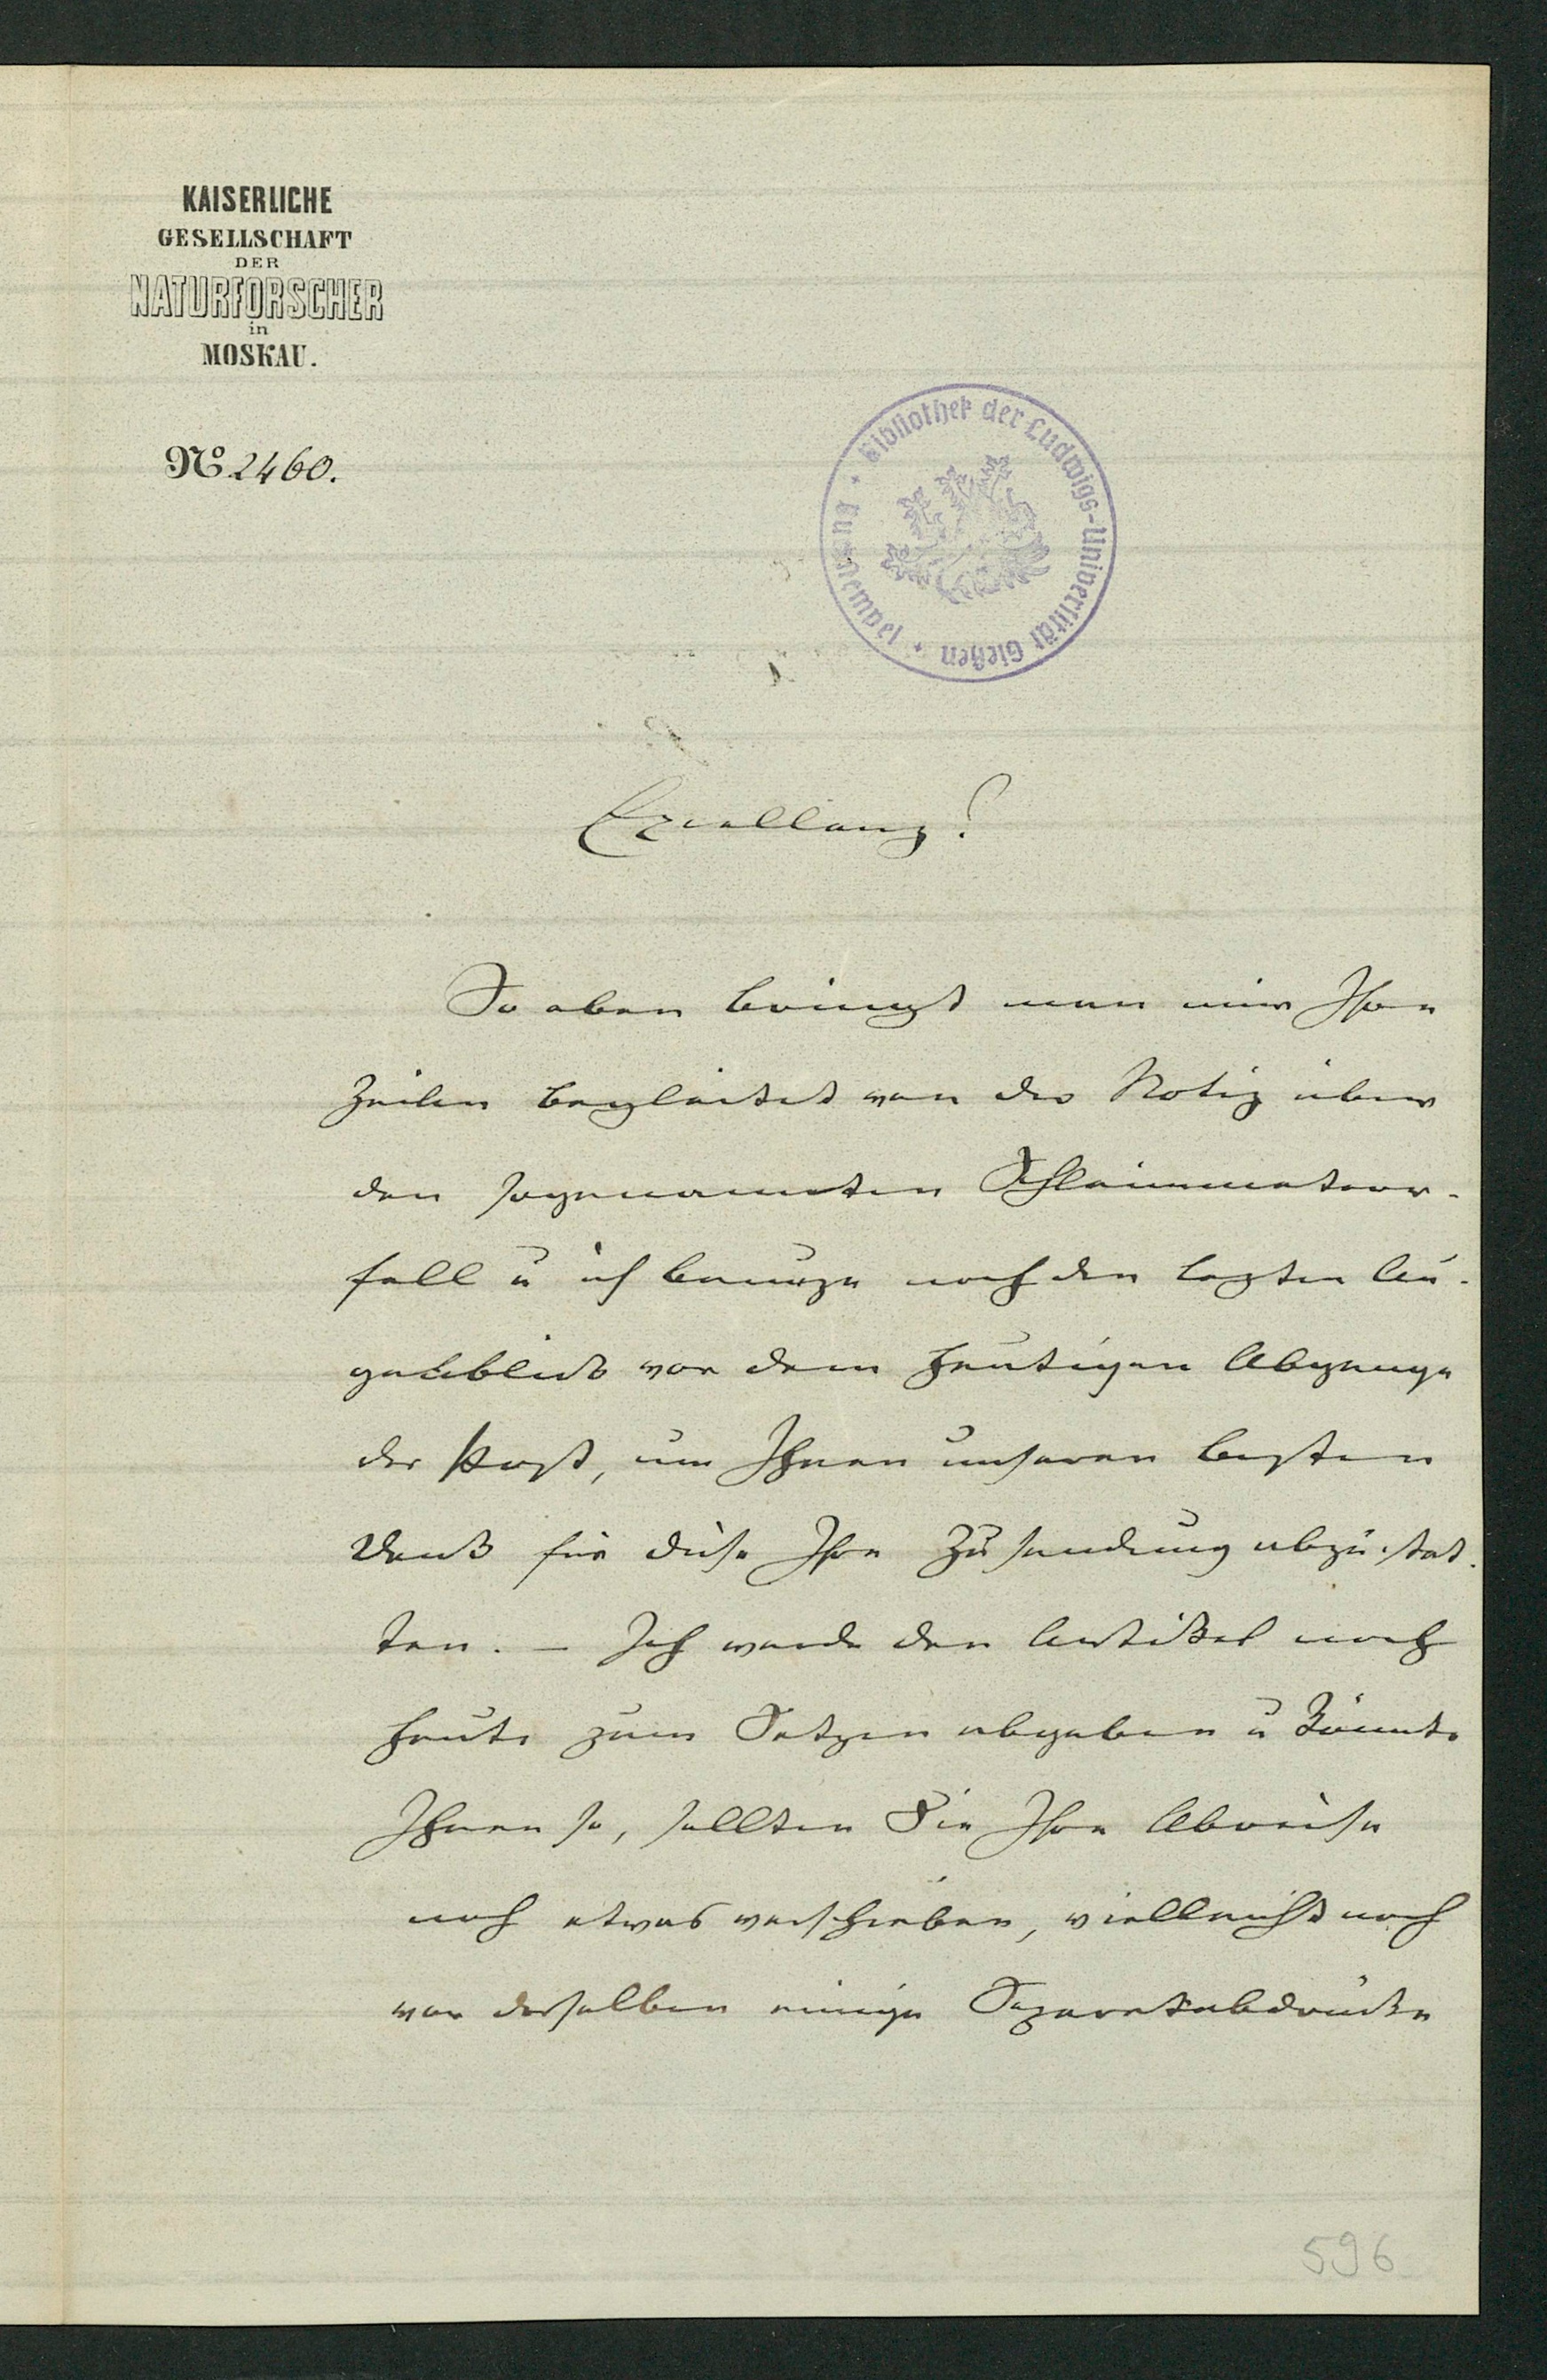 KAISERLICHE
GESELLSCHAFT
DER
NATURFORSCHER
in
MOSKAU.
№ 2460.
Bibliothek der Ludwigs-Universität Gießen
Excellenz!
So eben bringt man mir Ihre
Zeilen begleitet von der Notiz über
den sogenannten Schleimmeteor-
fall u ich benuze noch den lezten Au-
genblick vor dem heutigen Abgange
der Post, um Ihnen unseren besten
Dank für diese Ihre Zusendung abzustat-
ten. – Ich werde den Artikel noch
heute zum Setzen abgeben u könnte
Ihnen so, sollten Sie Ihre Abreise
noch etwas verschieben, vielleicht noch
vor derselben einige Separatabdrücke
596